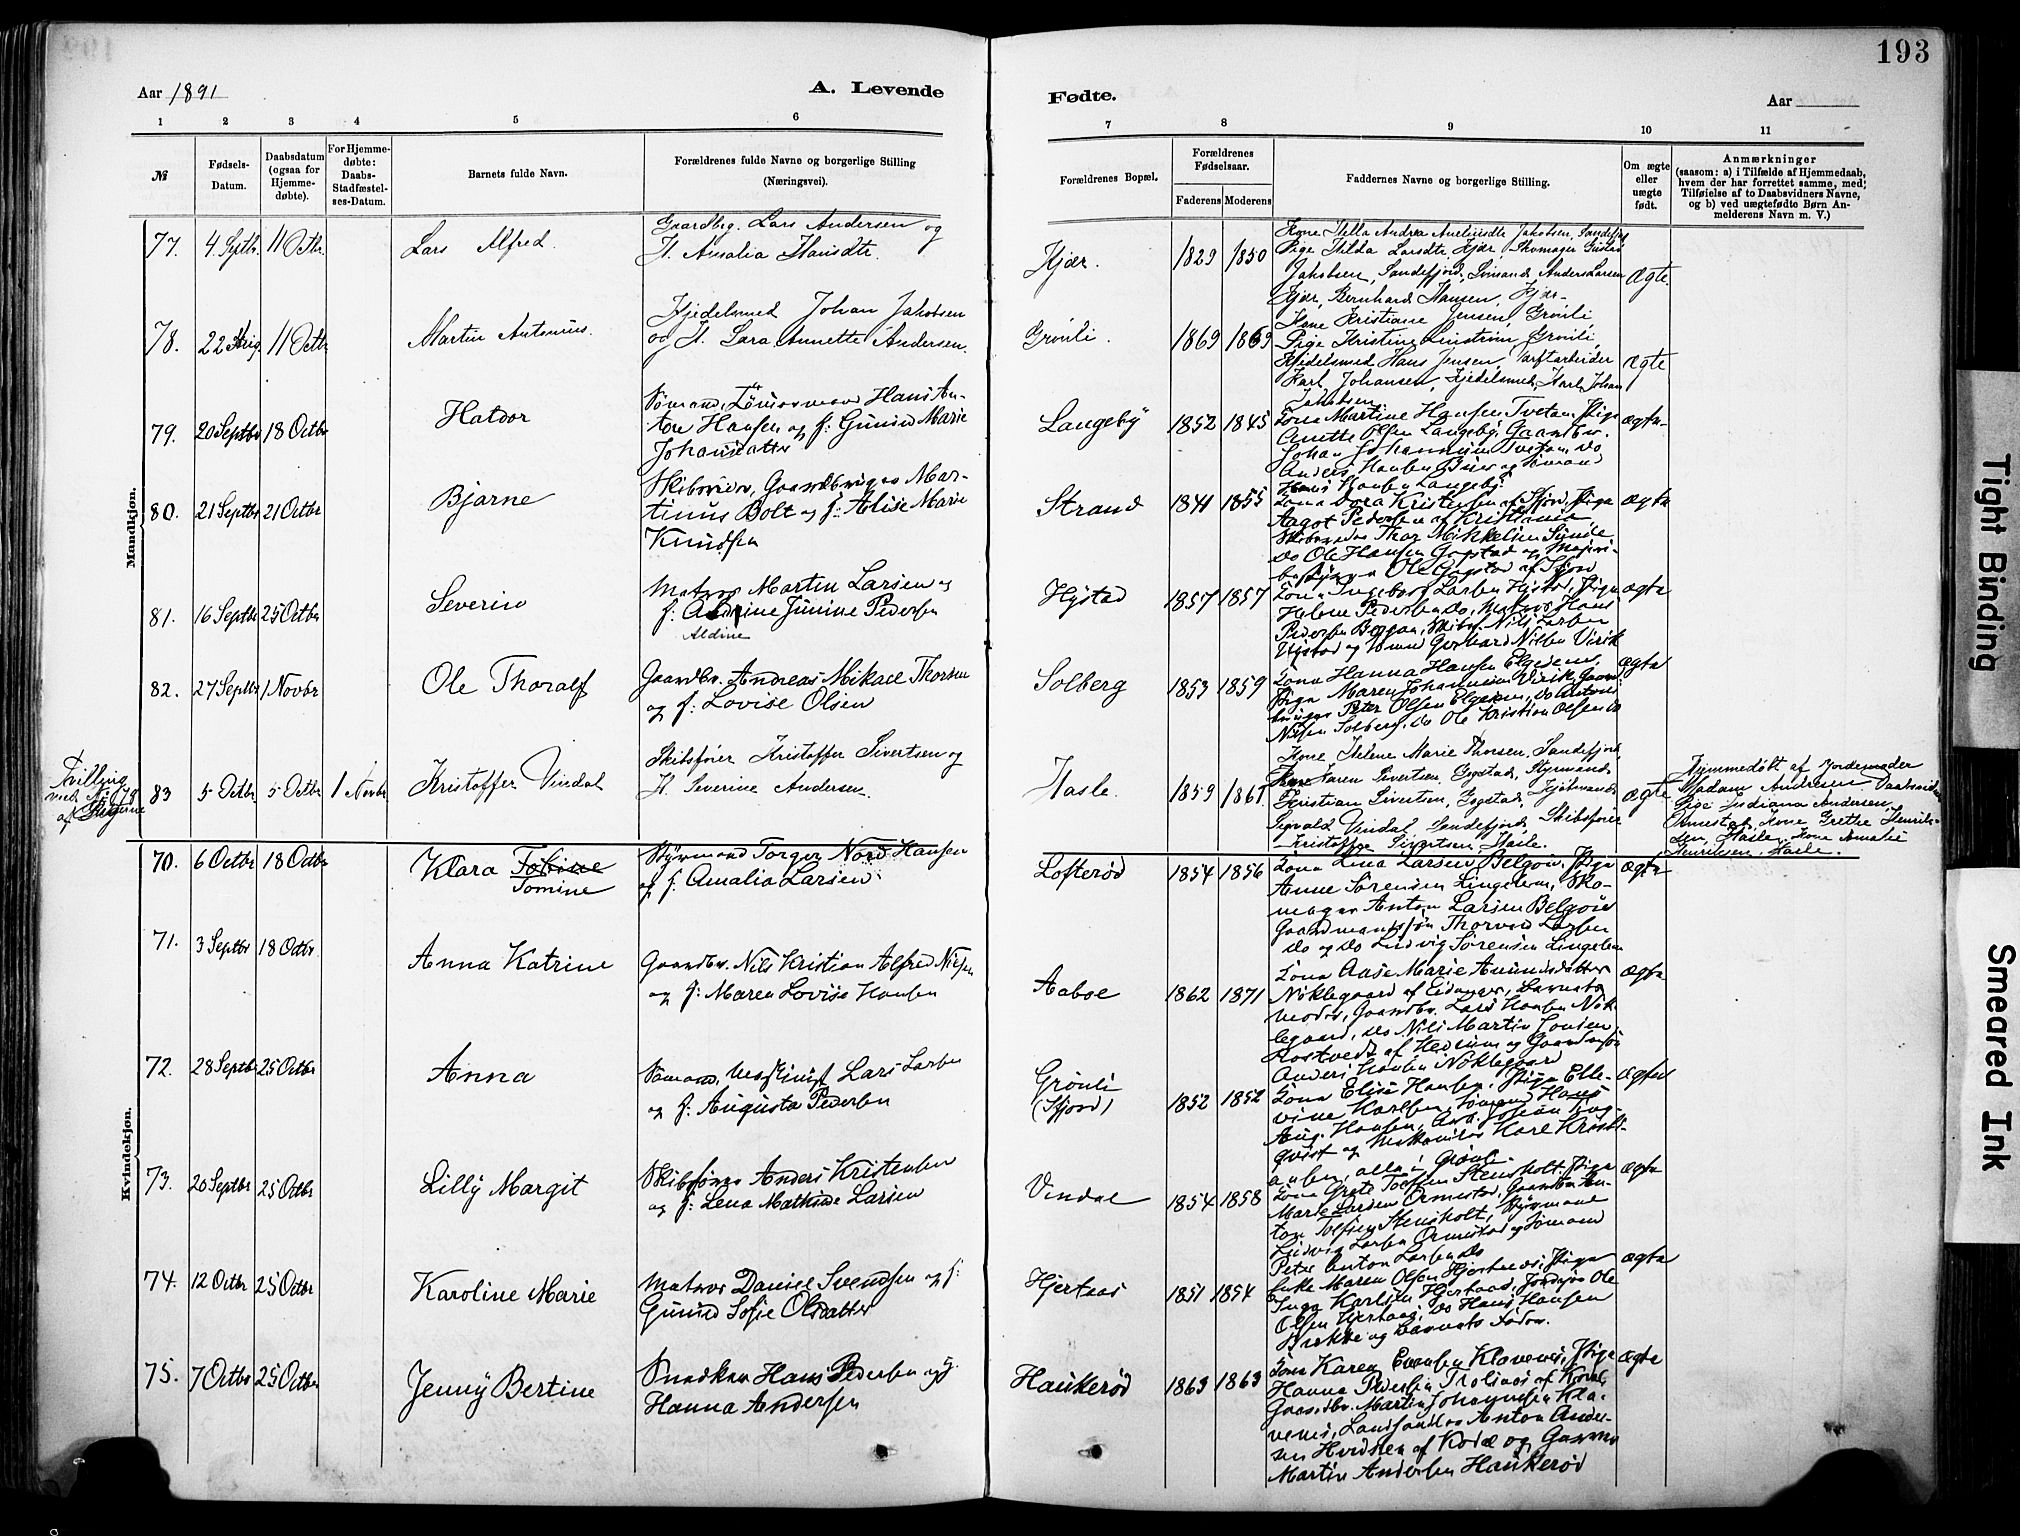 193
Aar 1891
A. Levende
Fødte.
Aar
1 2 3 4 5 6 7 8 9 10 11
№
Fødsels-
Datum.
Daabsdatum
(ogsaa for
Hjemme-
døbte).
For Hjemme-
døbte:
Daabs-
Stadfæstel-
ses-Datum.
Barnets fulde Navn.
Forældrenes fulde Navne og borgerlige Stilling
(Næringsvei).
Forældrenes Bopæl.
Forældrenes
Fødselsaar.
Faderens Moderens
Faddernes Navne og borgerlige Stilling.
Om ægte
eller
uægte
født.
Anmærkninger
(saasom: a) i Tilfælde af Hjemmedaab,
hvem der har forrettet samme, med
Tilføielse af to Daabsvidners Navne,
og b) ved uægtefødte Børn An-
melderens Navn m. V.)
Mandkjøn.
77. 4 Septbr. 11 Octbr. Lars Alfred.
Gaardbrg. Lars Andersen og
H. Amalia Hansdtr.
Kjær. 1829 1850
Jakobsen, Sandefjord, Anders Larsen
Kjær, Bernhard Hansen, Kjær.
Ægte.
78. 22 Aug. 11 Octbr Martin Antonius.
Kjedelsmed Johan Jakobsen
og H. Lara Annette Andersen.
Grønli. 1869 1869
Kone Kristiane Jensen, Grønli,
Pige Kristine Linstrøm, Grønli,
Kjedelsmed Hans Jensen, Værftarbeider
Karl Johansen, Kjedelsmed Karl Johan
Jakobsen
Ægte
79. 20 Septbr 18 Octbr Haldor
Sømand, Hans An-
ton Hansen og f: Gunild Marie
Johansdatter
Langeby 1852 1845
Kona Martine Hansen Tvetan, Pige
Anette Olsen Langeby, Gaardbr.
Johan Johannesen Tvetan, do
Anders Hansen og Sømand
Hans Hansen Langeby
ægte
80. 21 Septbr 21 Octbr Bjarne
Skibsreder, Gaardbruger Mar-
tinus Bolt og f: Elise Marie
Knudsen
Strand 1841 1855
Kona Kristensen af Sfjord, Pige
Aagot Pedersen af Kristiania
Thor Mikkelsen
do Ole Hansen Gogstad og
Ole Gogstad af Sfjord
ægte
81. 16 Septbr 25 Octbr Severin
Matros Martin Larsen og
f: Junine Pedersen
Aldine
Hystad 1857 1857
Kona Ingeborg Larsen Hystad, Pige
Helene Pedersen do, Matros Hans
Pedersen Bergan, Nils Larsen
Hystad og Gerhard Nilsen Virik
ægte
82. 27 Septbr 1 Novbr Ole Thoralf
Gaardbr. Andreas Mikael Thorsen
og f: Lovise Olsen
Solberg 1853 1859
Kona Hanna Hansen Elgesem,
Pige Maren Johannesen Virik, Gaard-
bruger Peter Olsen Elgesem, do Antoni
Nilsen Solberg, do Ole Kristian Olsen do
ægte
Tvilling
med No 78
af Pigerne
83 5 Octbr 5 Octbr 1 Novbr Kristoffer Vindal
Skibsfører Kristoffer Sivertsen og
H. Severine Andersen.
Hasle. 1859 1861
Kone Helene Marie Thorsen, Sandefjord,
Kone Karen Sivertsen, Gogstad, Styrmand
Kristian Sivertsen, Gogstad, Kjøbmand
Sigvald Vindal Sandefjord, Skibsfører
Kristoffer Sivertsen, Hasle.
Ægte
Hjemmedøbt af Jordemoder
Madam Andresen, Daabsvidner
Pige Indiana Andersen,
Ormestad, Kone Grethe Henrik-
sen, Hasle, Kone Amalie
Henriksen, Hasle.
Kvindekjøn.
70. 6 Octbr 18 Octbr Klara Tobine
Tomine
Styrmand Torger Nord Hansen
og f: Amalia Larsen
Lofterød 1854 1856
Kona Lina Larsen Belgøn, Pige
Anne Sørensen Lingelem, Sko-
mager Anton Larsen Belgøn
Gaardmandssøn Thorvald Larsen
do og do Ludvig Sørensen Lingelem
ægte
71. 3 Septbr 18 Octbr Anna Katrine
Gaardbr. Nils Kristian Alfred Nilsen
og f: Maren Lovise Hansen
Aaboe 1862 1871
Kona Aase Marie Amundsdatter
Nøklegaard af Eidanger, Barnets
Moder, Gaardbr. Lars Hansen Nøk-
legaard, do Nils Martin
af Hedrum og Gaardmsøn
Anders Hansen Nøklegaard
ægte
72. 28 Septbr 25 Octbr Anna
Sømand, Maskinist Lars Larsen
og f: Augusta Pedersen
Grønli
(Sfjord) 1852 1852
Kona Elise Hansen, Pige Elle-
vine Karlsen, Sømand Hans
Aug. Hansen, Arb. Johan
qvist og Karl Kristi-
ansen, alle i Grønli
ægte
73. 20 Septbr 25 Octbr Lilly Margit
Skibsfører Anders Kristensen
og f: Lena Mathilde Larsen
Vindal 1854 1858
Kona Grete Tolfsen Stensholt, Pige
Marie Larsen Ormestad, Gaardbr. An-
ton Tolfsen Stensholt, Styrmand
Ludvig Larsen Ormestad og Sømand
Peter Anton Larsen do
ægte
74. 12 Octbr 25 Octbr Karoline Marie
Matros Daniel Svendsen og f:
Gunild Sofie Olsdatter
Hjertaas 1851 1854
Enke Maren Olsen Hjertaas, Pige
Inga Karlsen Hjertaas, Ole
Olsen Hjertaas, do Hans Hansen
og Barnets Fader.
ægte
75. 7 Octbr 25 Octbr Jenny Bertine
Snedker Hans Pedersen og f:
Hanna Andersen
Haukerød 1863 1863
Kona Karen Evensen Klavenes, Pige
Hanna Pedersen af Kodal,
Gaardbr. Martin Johannesen Kla-
venes, Landhandler Anton Ander-
sen af Kodal og Garver
Martin Andersen Haukerød
ægte
Tight Binding
Smeared Ink